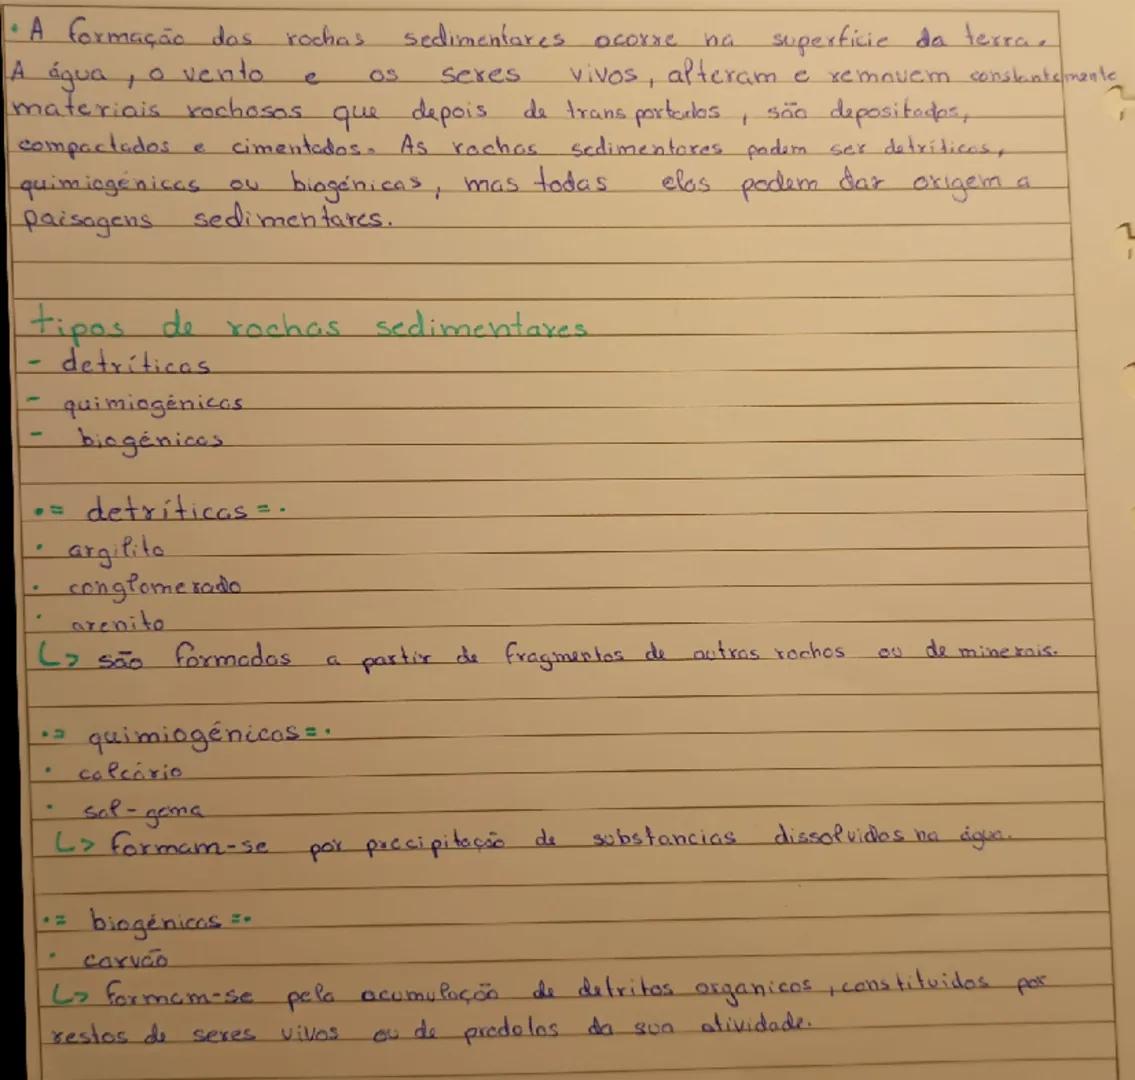 • A formação das rochas sedimentares ocorre na superfície da terra.
A água, o vento e os seres vivos, alteram e removem constantemente
materiais rochosos que depois de transportados, são depositados,
compactados e cimentados. As rochas sedimentares podem ser detríticas,
quimiogénicas ou biogénicas, mas todas elas podem dar origem a
paisagens sedimentares.
tipos de rochas sedimentares
- detríticas
- quimiogénicas
- biogénicas
•= detríticas =•
• argilito
• conglomerado
• arenito
↳ são formadas a partir de fragmentos de outras rochas ou de minerais.
•= quimiogénicas =•
• calcário
• sal-gema
↳ formam-se por precipitação de substancias dissolvidas na água.
•= biogénicas =•
• carvão
↳ formam-se pela acumulação de detritos organicos, constituidos por
restos de seres vivos ou de produtos da sua atividade.